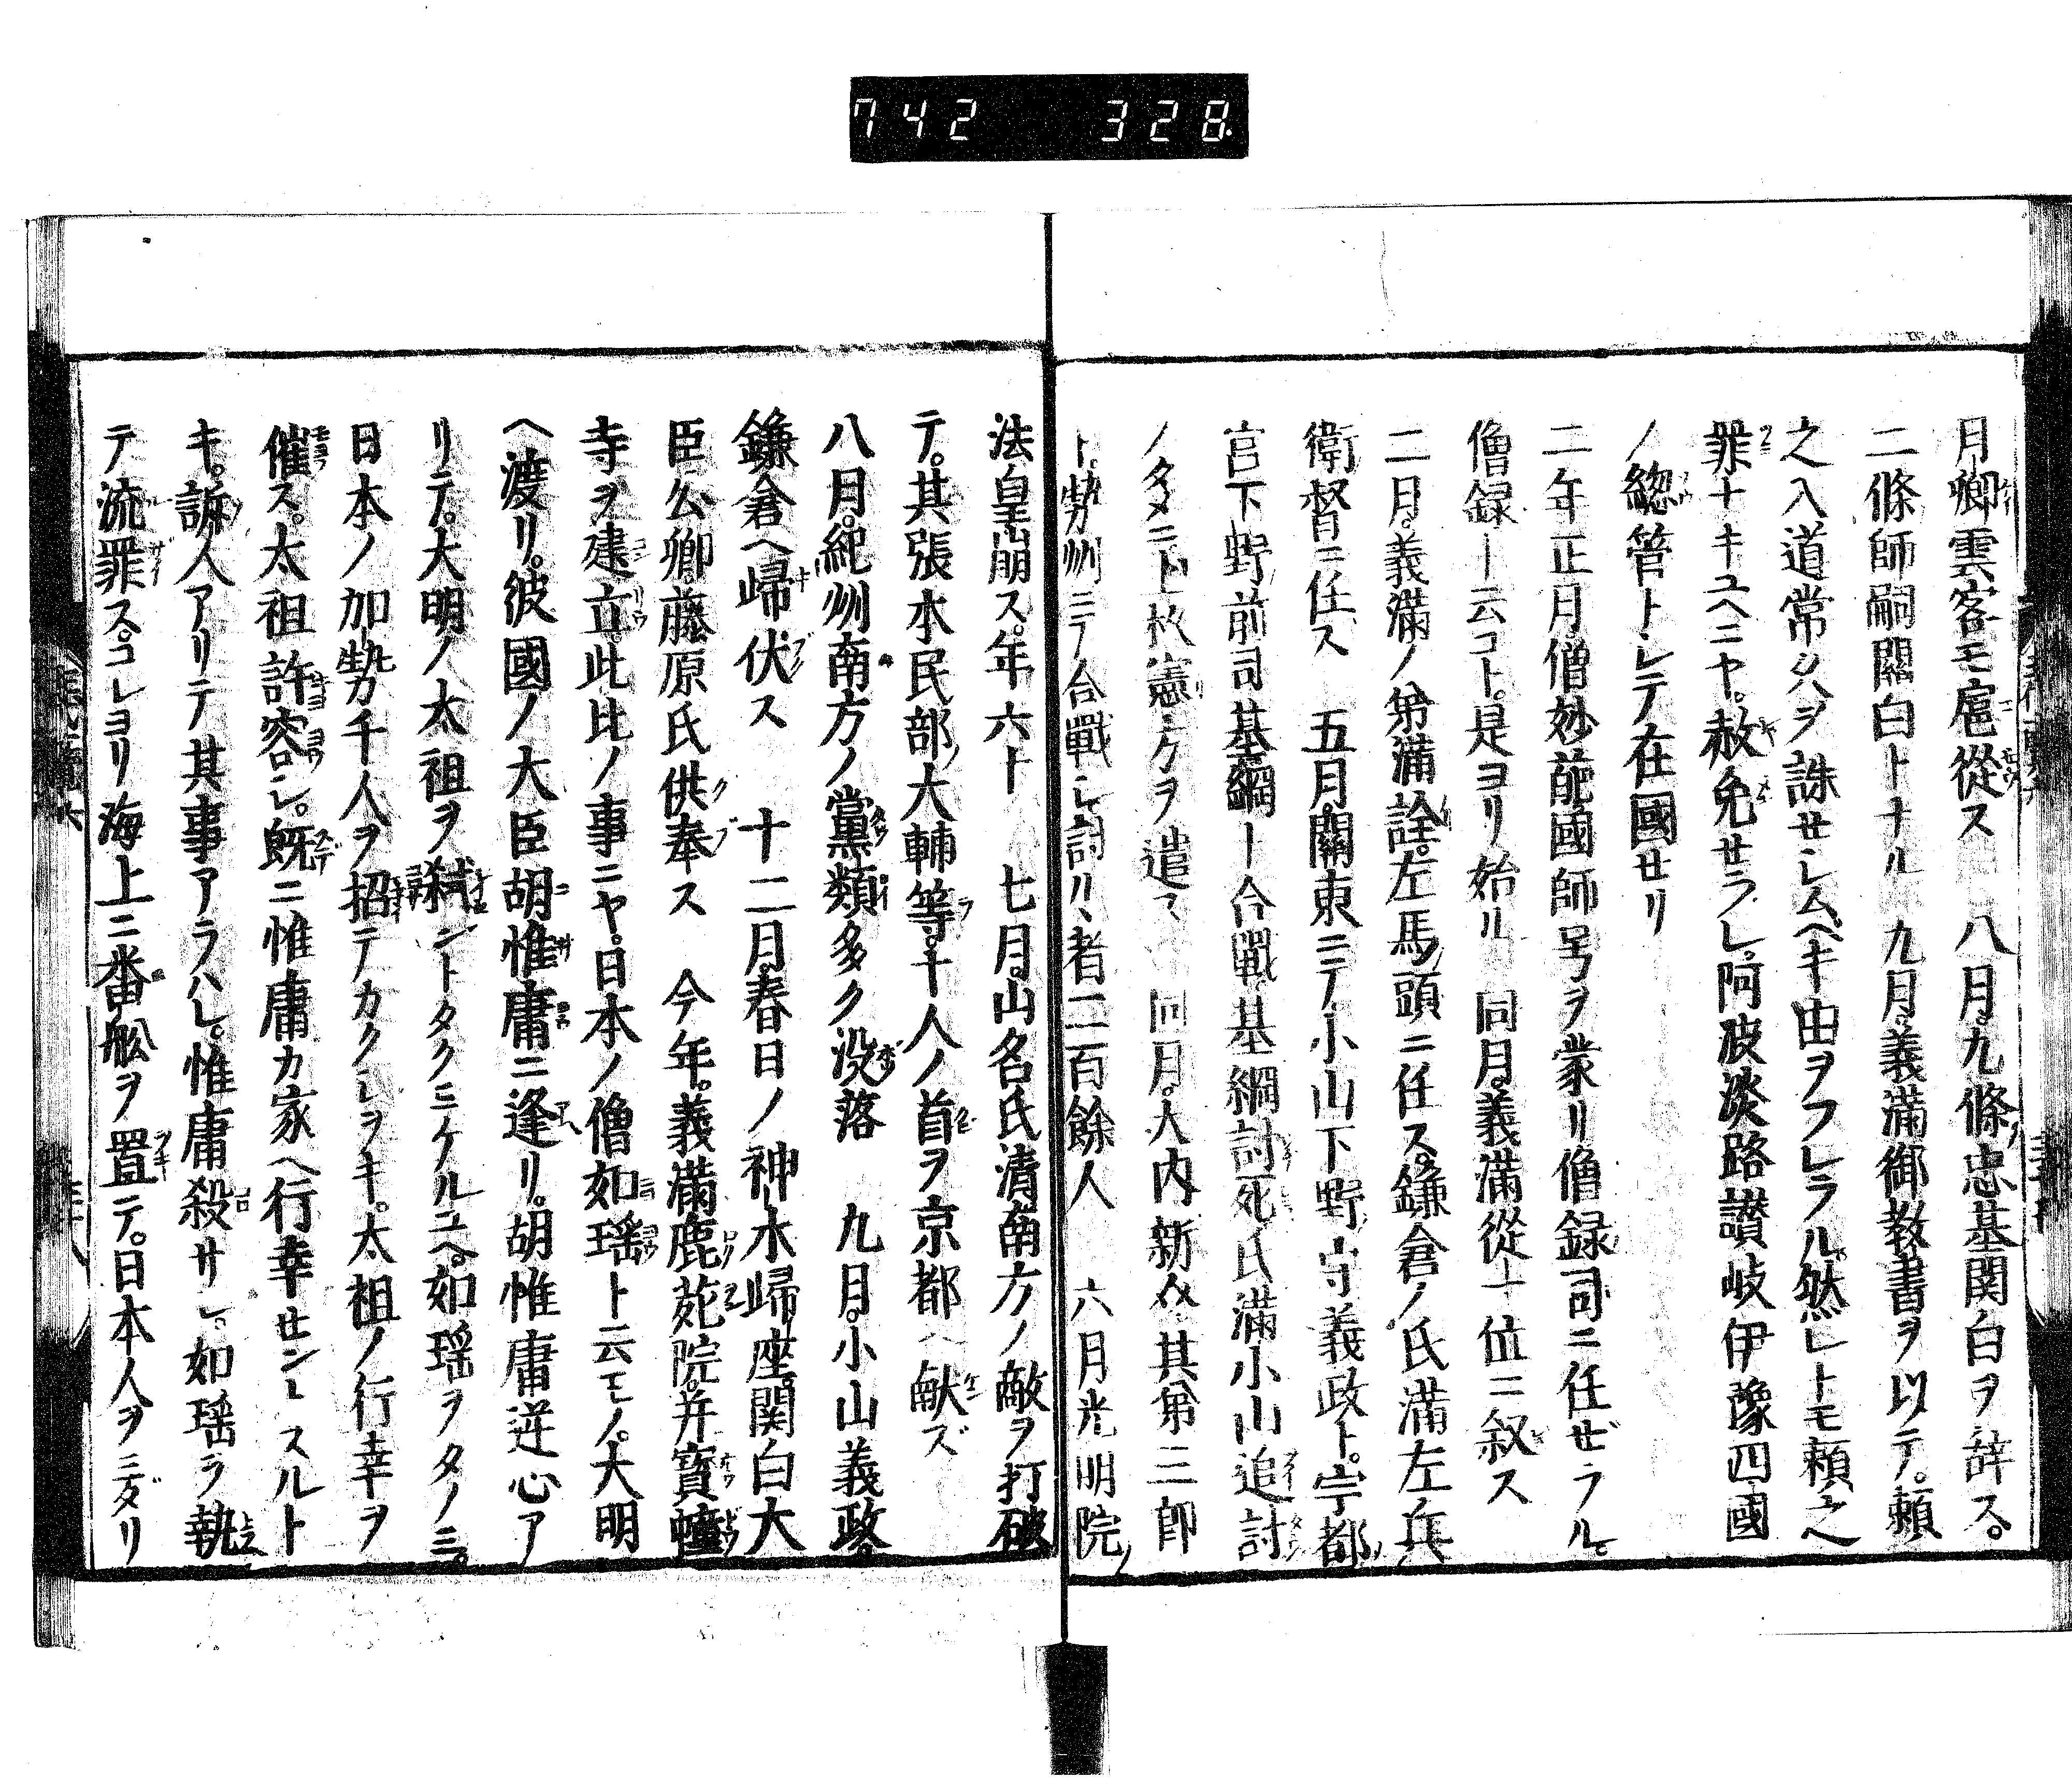 742 328
月卿雲客モ扈從ス 八月。九條忠基関白ヲ辞ス。
二條師嗣關白トナル 九月。義滿御教書ヲ以テ。頼
之入道常久ヲ誅セシムベキ由ヲフレラル。然レトモ頼之ヘ
罪ナキユヘニヤ。赦免セラレ。阿波淡路讃岐伊豫四國
ノ總管トシテ在國セリ
二年正月。僧妙葩國師号ヲ蒙リ僧録司ニ任ぜラル。
僧録ト云コト。是ヨリ始ル 同月。義滿從一位ニ叙ス
二月。義滿ノ弟滿詮。左馬頭ニ任ス。鎌倉ノ氏滿左兵
衛督ニ任ス 五月。關東ニテ小山下野守義政ト。宇都
宮下野前司基綱ト合戰。基綱討死。氏滿小山追討
ノタメニ上杦憲方ヲ遣ス 同月。大内新介其弟三郎
ト。勢州ニテ合戰シ討ルヽ者二百餘人 六月光明院
法皇崩ス。年六十 七月。山名氏清南方ノ敵ヲ打破
テ。其張本民部大輔等。十人ノ首ヲ京都ヘ獻ズ
八月。紀州南方ノ黨類多ク没落 九月。小山義政。
鎌倉ヘ歸伏ス 十二月。春日ノ神木歸座。関白大
臣公卿。藤原氏供奉ス 今年。義滿鹿苑院。并寳幢
寺ヲ建立。此比ノ事ニヤ。日本ノ僧如瑶ト云モノ。大明
ヘ渡リ。彼國ノ大臣胡惟庸ニ逢リ。胡惟庸逆心ア
リテ。大明ノ太祖ヲ弑ントタクミケルユヘ。如瑶ヲタノミ。
日本ノ加勢力千人ヲ招テカクシヲキ。太祖ノ行幸ヲ
催ス。太祖許容シ。既ニ惟庸カ家ヘ行幸せントスルト
キ。訴人アリテ其事アラハレ。惟庸殺サレ。如瑶ヲ執
テ流罪ス。コレヨリ海上ニ番舩ヲ置テ。日本人ヲミダリ